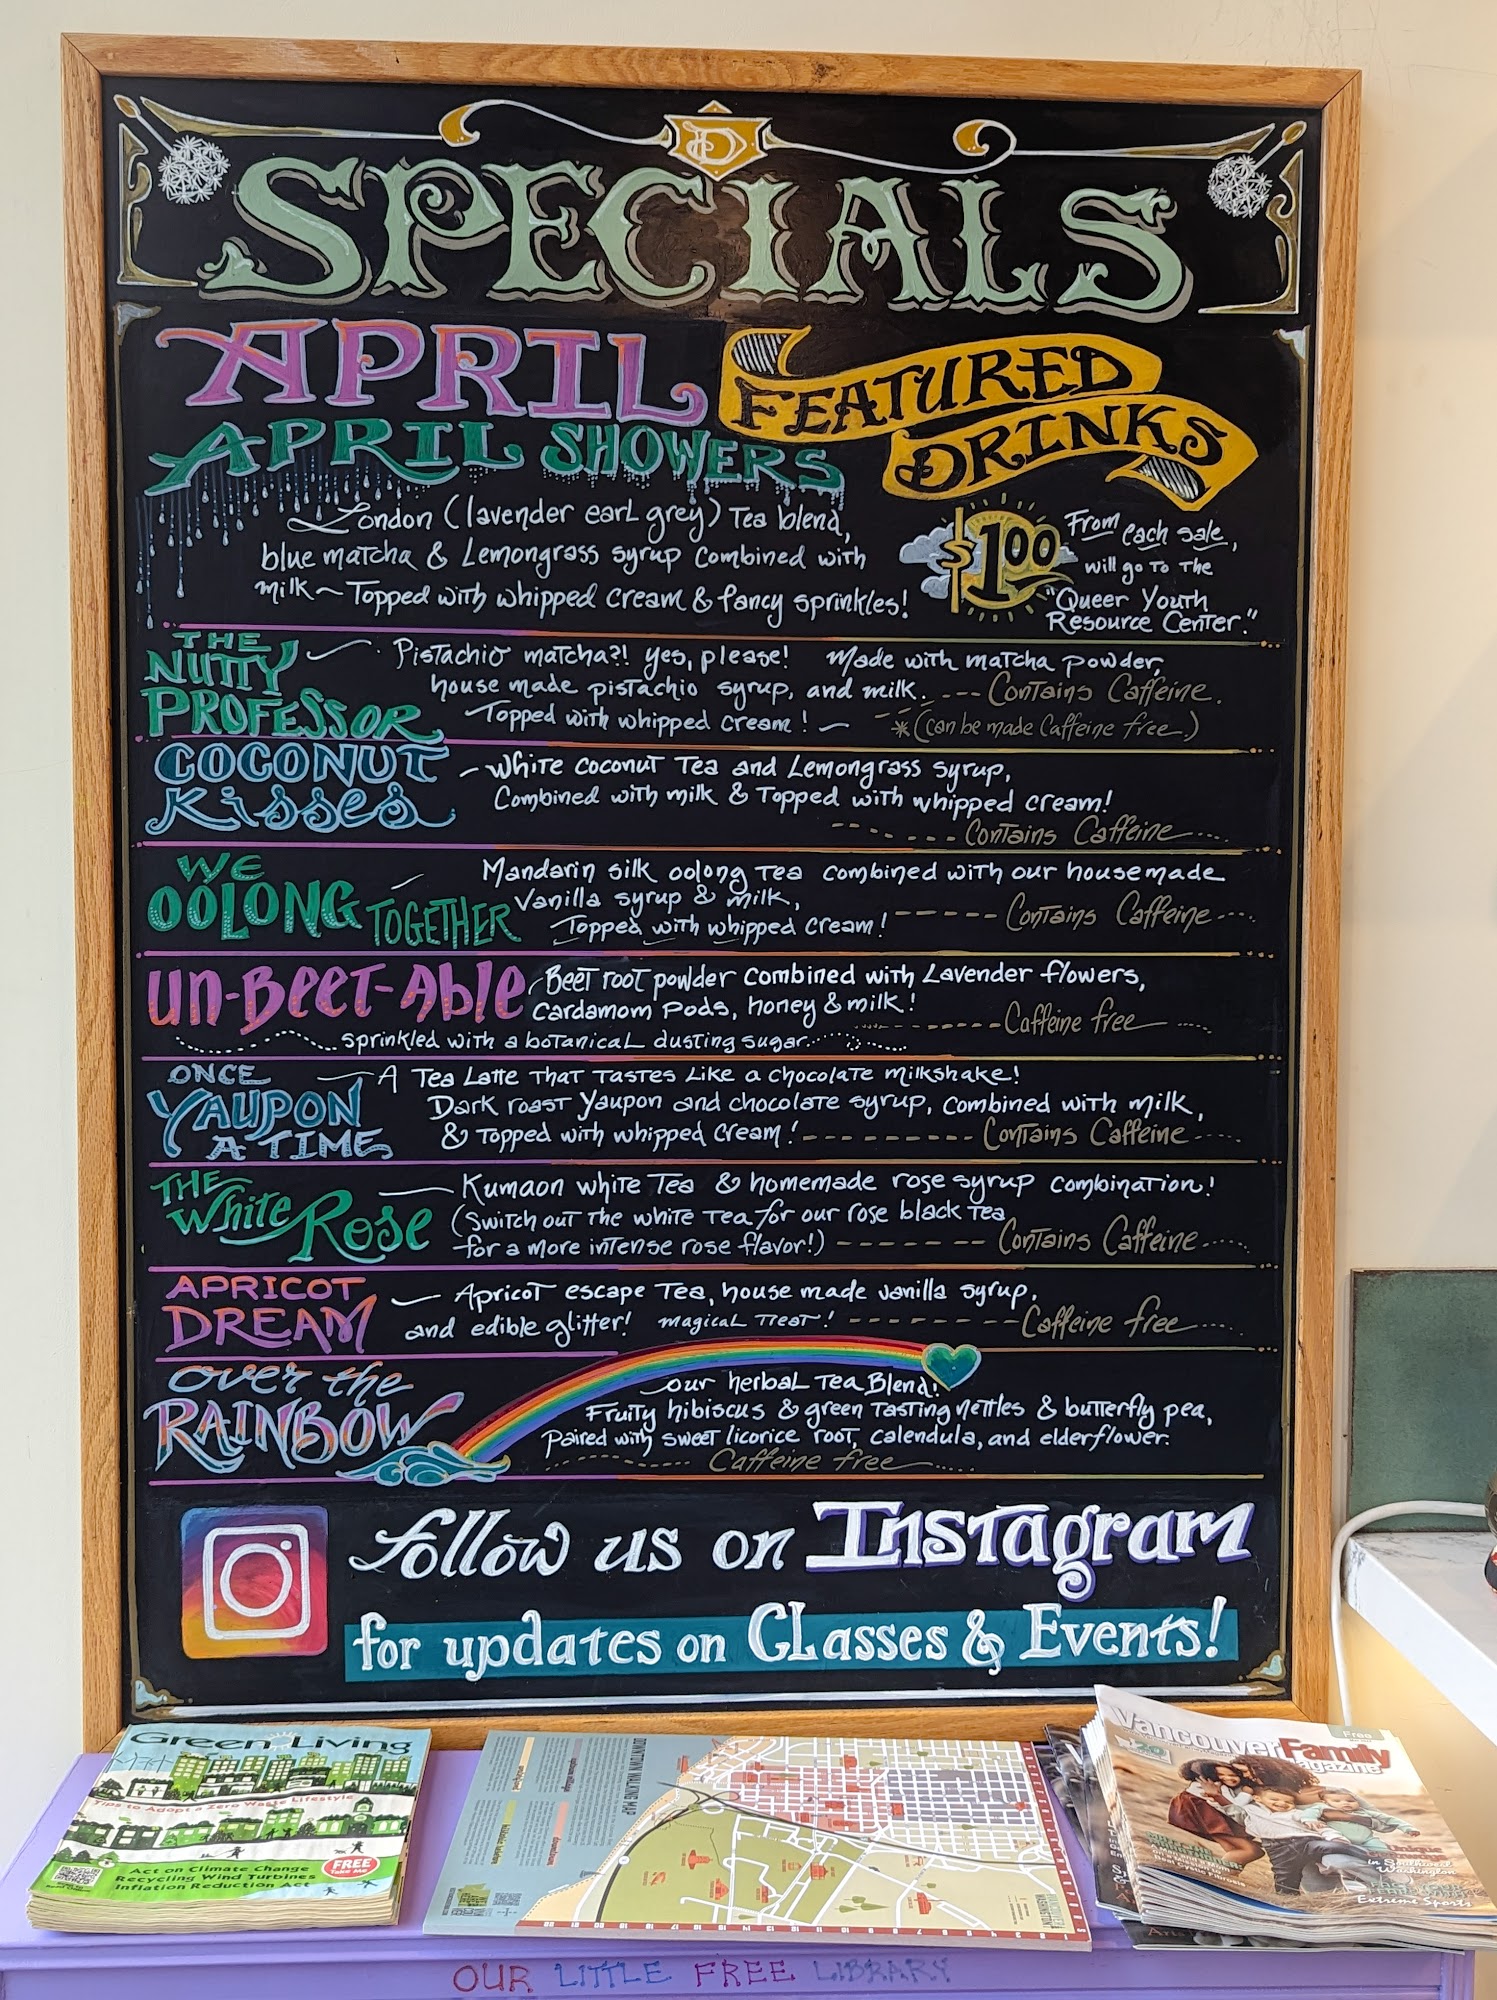 D
SPECIALS
APRIL
FEATURED
DRINKS
APRIL SHOWERS
London (lavender earl grey) Tea blend,
blue matcha & Lemongrass syrup combined with
milk~Topped with whipped cream & fancy sprinkles!
$1.00 From each sale,
will go to the
"Queer Youth
Resource Center."
THE
NUTTY
PROFESSOR
Pistachio matcha?! yes, please! Made with matcha powder,
house made pistachio syrup, and milk. --- Contains Caffeine.
Topped with whipped cream! ~ *(can be made Caffeine free.)
COCONUT
Kisses
White coconut Tea and Lemongrass syrup,
Combined with milk & Topped with whipped cream!
Contains Caffeine
WE
OOLONG TOGETHER
Mandarin silk oolong Tea combined with our housemade
Vanilla syrup & milk,
Topped with whipped cream! ----- Contains Caffeine
UN-BEET-Able
Beet root powder combined with Lavender flowers,
Cardamom Pods, honey & milk!
Caffeine free
sprinkled with a botanical dusting sugar
ONCE
YAUPON
A TIME
A Tea Latte That Tastes Like a chocolate milkshake!
Dark roast Yaupon and chocolate syrup, combined with milk,
& Topped with whipped cream! -------- Contains Caffeine
THE
White Rose
Kumaon white Tea & homemade rose syrup combination!
(Switch out the white Tea for our rose black Tea
for a more intense rose flavor!) ------- Contains Caffeine
APRICOT
DREAM
Apricot escape Tea, house made vanilla syrup,
and edible glitter! magical Treat! -------- Caffeine free
over the
RAINBOW
our herbal Tea Blend!
Fruity hibiscus & green Tasting nettles & butterfly pea,
Paired with sweet licorice root, calendula, and elderflower.
Caffeine free
Follow us on Instagram
for updates on Classes & Events!
Green Living
Tips to Adopt a Zero Waste Lifestyle
Act on Climate Change
Recycling Wind Turbines
Inflation Reduction Act
FREE
Take Me
DOWNTOWN WALKING MAP
Vancouver Family
Magazine
Free
20
in Southwest
Washington
Extreme Sports
OUR LITTLE FREE LIBRARY